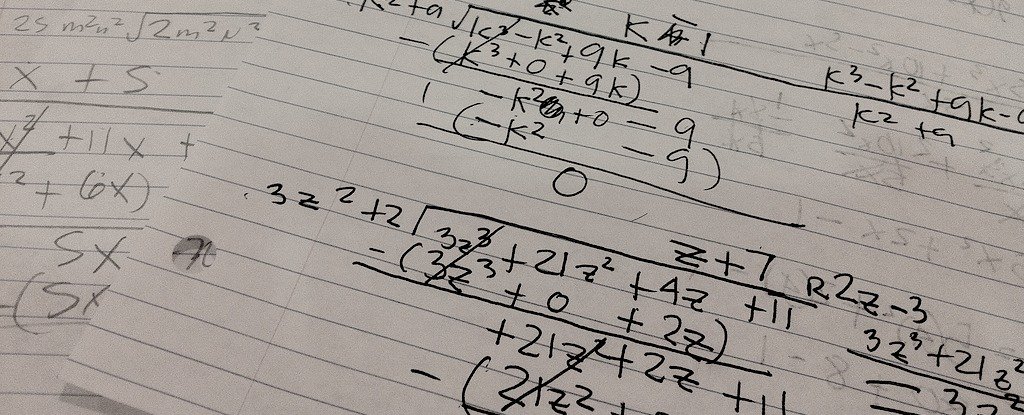 25 m²n² √2m²n²
x + 5
x² + 11x +
² + 6x)
5x
-(5x
K - 1
k² + 9 √k³ - k² + 9k - 9
- (k³ + 0 + 9k)
- k² + 0 - 9
- (-k² - 9)
0
k³ - k² + 9k -
k² + 9
z + 7 R 2z - 3
3z² + 2 √3z³ + 21z² + 4z + 11
- (3z³ + 0 + 2z)
+ 21z² + 2z + 11
- (21z²
3z³ + 21z²